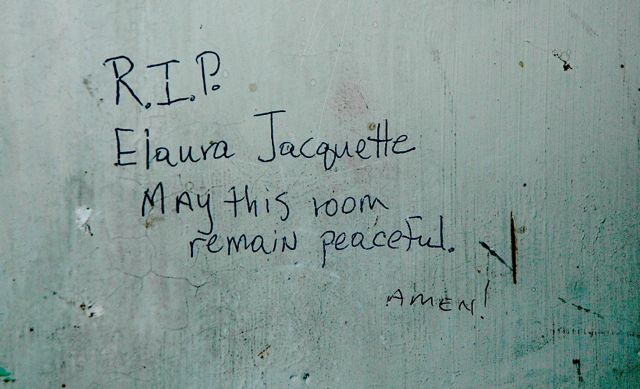 R.I.P.
Elaura Jacquette
MAy this room
remaiN peaceful.
AMEN!